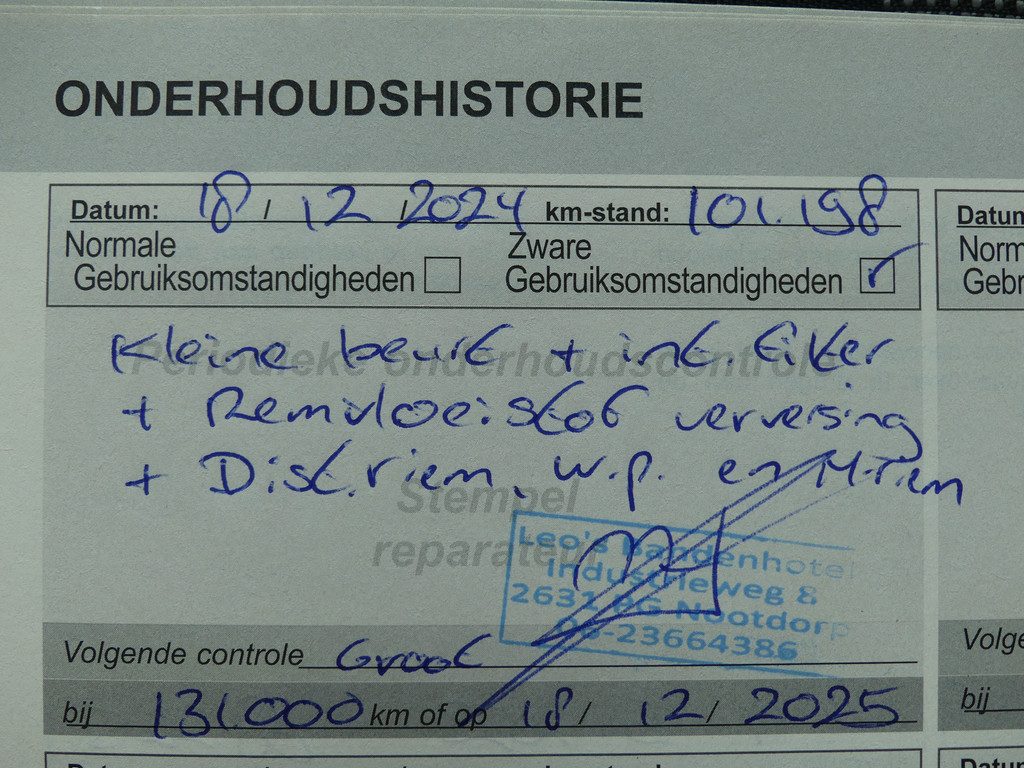 ONDERHOUDSHISTORIE
Datum: 18 / 12 / 2024 km-stand: 101.198
Normale Zware
Gebruiksomstandigheden Gebruiksomstandigheden
Periodieke onderhoudscontrole
Kleine beurt + int. filter
+ Remvloeistof verversing
+ Dist.riem, w.p. en M-riem
Stempel
reparateur
Leo's Bandenhotel
Industrieweg 8
2631 PG Nootdorp
06-23664386
Volgende controle Groot
bij 131.000 km of op 18 / 12 / 2025
Datum
Norm
Gebr
Volge
bij